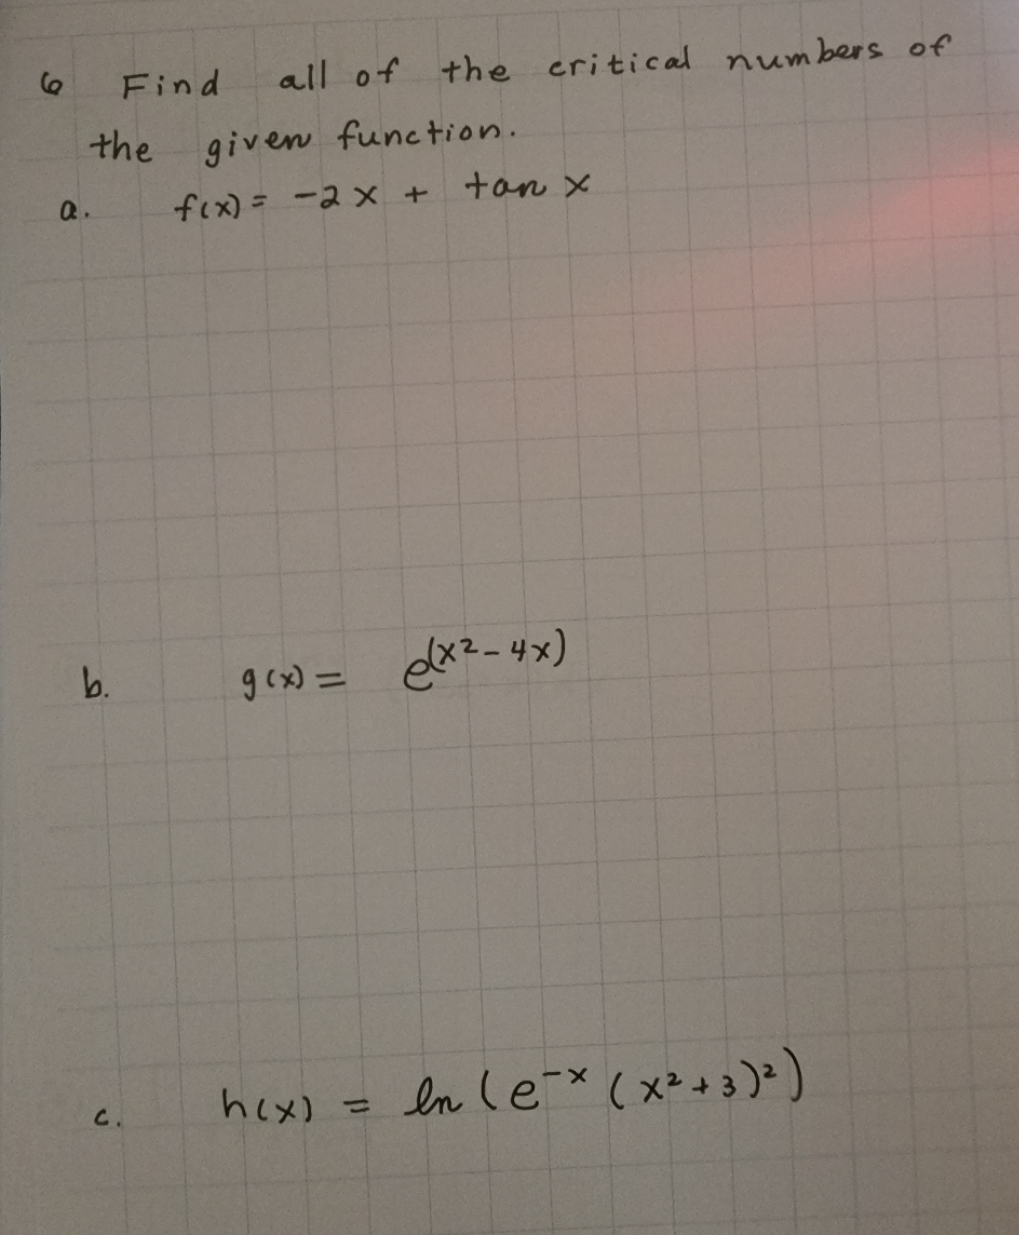 6 Find all of the critical numbers of
the given function.
a. f(x) = -2x + tan x
b. g(x) = e^(x²-4x)
c. h(x) = ln (e^-x (x²+3)²)